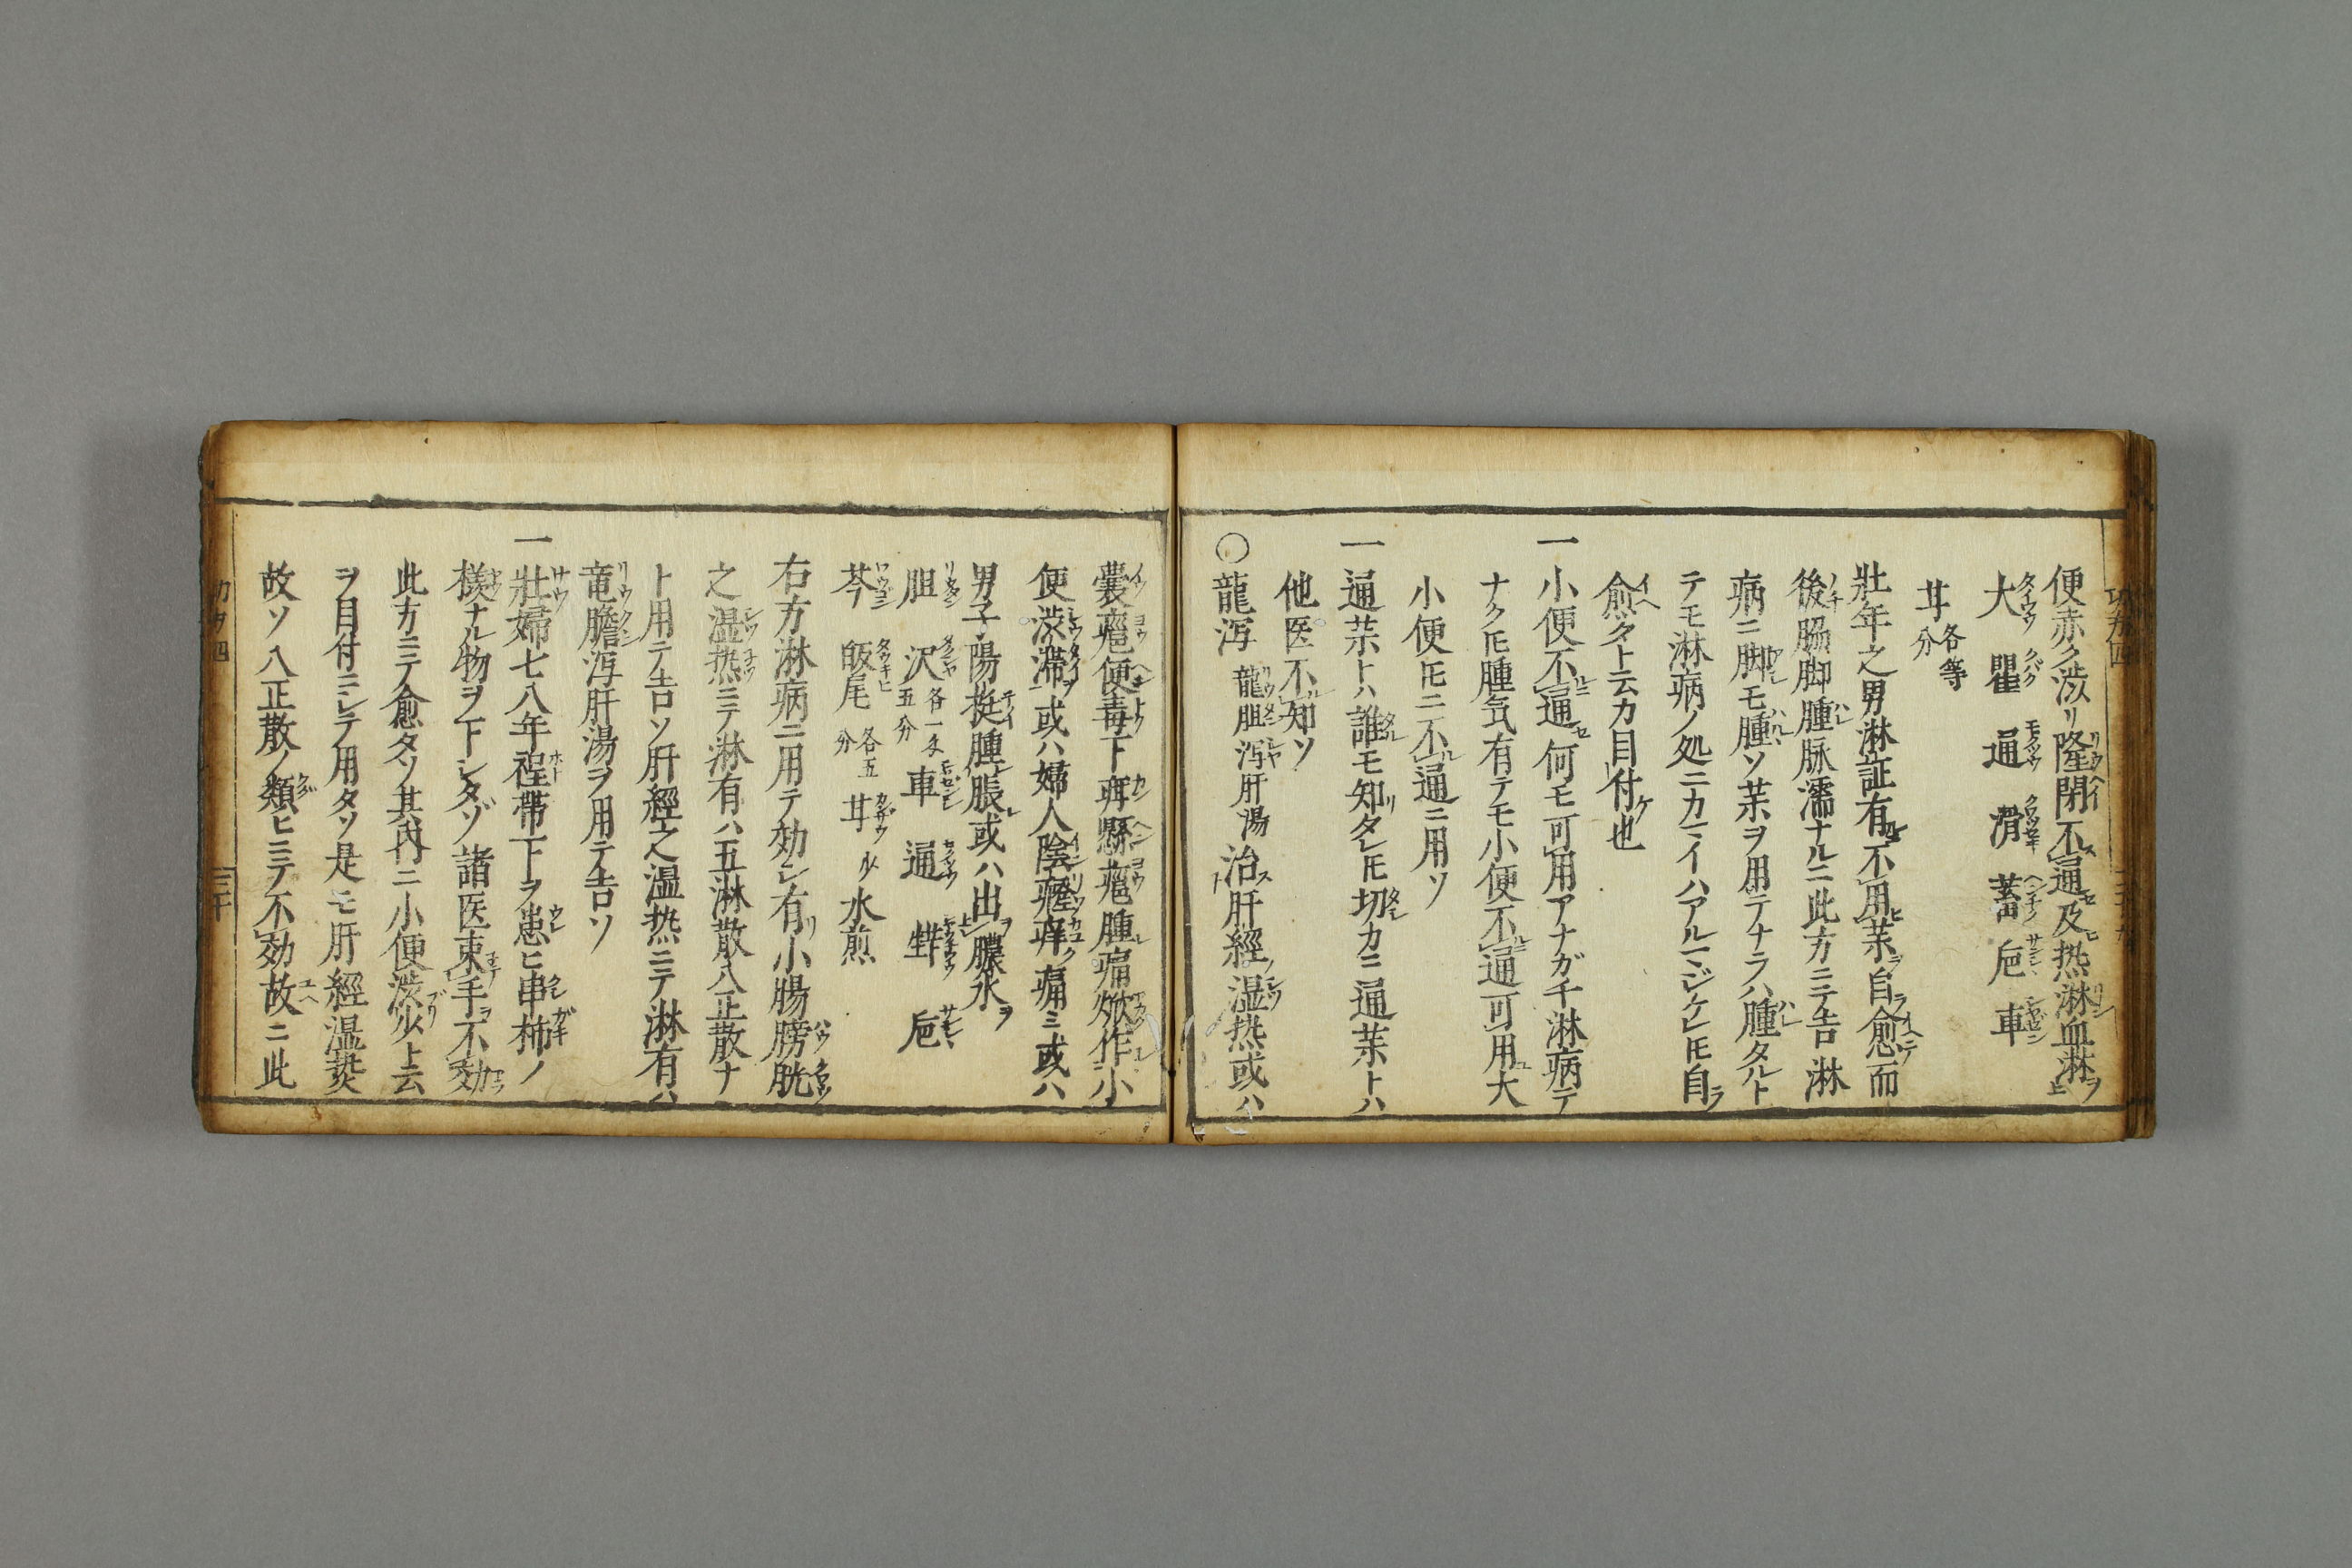 便赤ク渋リ隆閉不通及热淋血淋ヲ
大 瞿 通 滑 蓄 巵 車
甘 各等分
壯年之男淋証有不用薬自愈而
後脇脚腫脉濡ナルニ此方ニテ吉淋
病ニ脚モ腫ソ薬ヲ用テナラハ腫タルト
テモ淋病ノ処ニカマイハアルマジケレ𪜈自
愈タト云カ目付ケ也
一 小便不通何モ可用アナガチ淋病テ
ナク𪜈腫気有テモ小便不通可用大
小便𪜈ニ不通ニ用ソ
一 通薬トハ誰モ知タレ𪜈切カニ通薬トハ
他医不知ソ
〇 龍泻 龍胆泻肝湯 治肝經湿热或ハ
嚢癰便毒下疳懸癰腫痛焮作小
便渋滞或ハ婦人陰癃痒痛ミ或ハ
男子陽挺腫脹或ハ出膿水ヲ
胆 沢 各一匁五分 車 通 巵
芩 皈尾 各五分 甘少 水煎
右方淋病ニ用テ効シ有小腸膀胱
之湿热ニテ淋有ハ五淋散八正散ナ
ト用テ吉ソ肝經之温热ニテ淋有ハ
竜膽泻肝湯ヲ用テ吉ソ
一 壯婦七八年程帶下ヲ患ヒ串柿ノ
様ナル物ヲ下シタゾ諸医束手不効
此方ニテ愈タソ其内ニ小便渋少ト云
ヲ目付ニシテ用タソ是モ肝經温熱
故ソ八正散ノ類ヒニテ不効故ニ此